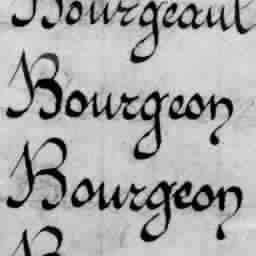 Bourgeaul
Bourgeon
Bourgeon
B